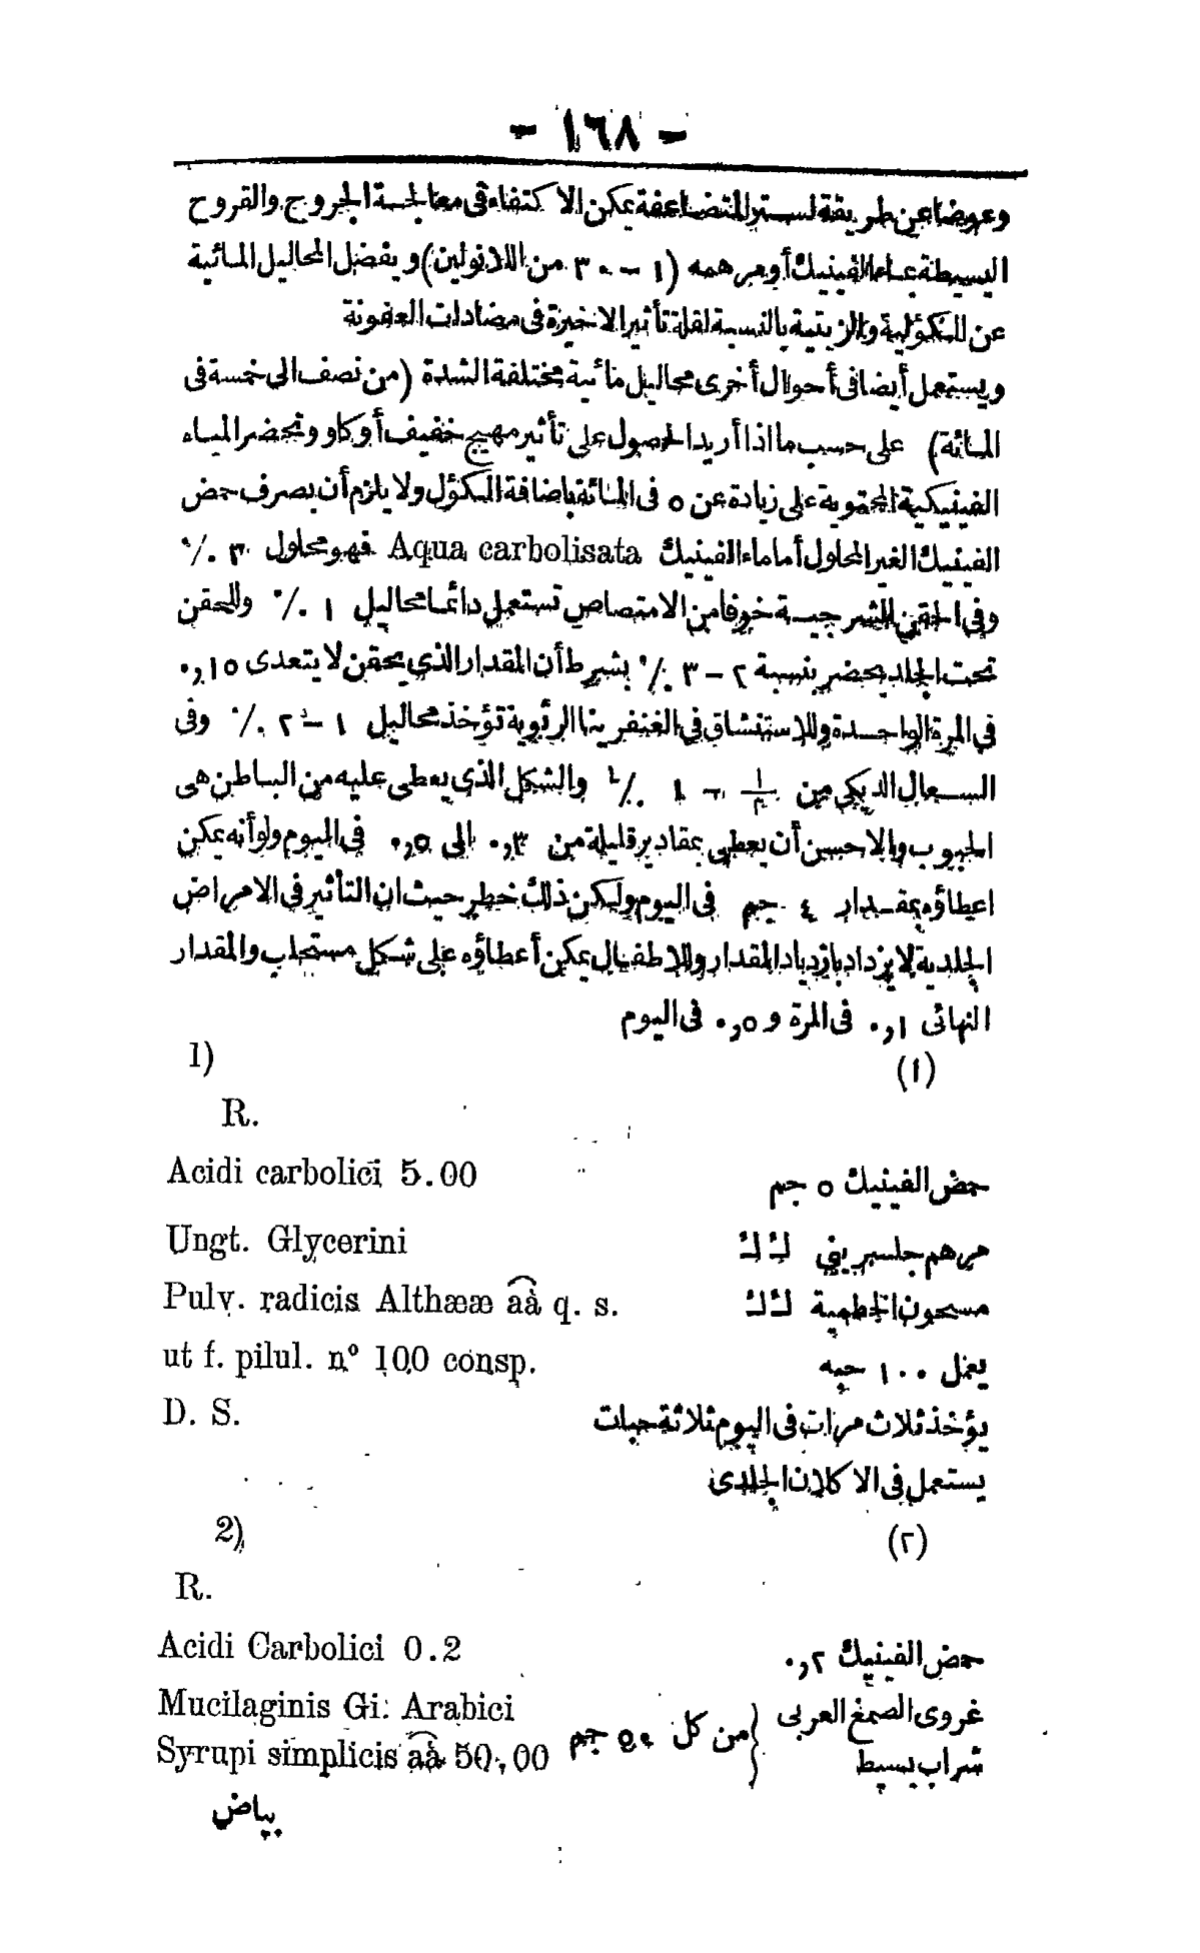 - ١٦٨ -
وعوضا عن طريقة لستر المتضاعفة يمكن الاكتفاء فى معالجة الجروح والقروح
البسيطة بماء الفينيك أو مرهمه (١ - ٣٠ من اللانولين) ويفضل المحاليل المائية
عن الكؤلية والزيتية بالنسبة لقلة تأثير الاخيرة فى مضادات العفونة
ويستعمل أيضا فى أحوال أخرى محاليل مائية مختلفة الشدة (من نصف الى خمسة فى
المائة) على حسب ما اذا أريد الحصول على تأثير مهيج خفيف أو كاو وتحضر المياه
الفينيكية المحتوية على زيادة عن ٥ فى المائة باضافة الكؤل ولا يلزم أن يصرف حمض
الفينيك الغير المحلول أما ماء الفينيك Aqua carbolisata فهو محلول ٣ ٪
وفى الحقن الشرجية خوفا من الامتصاص تستعمل دائما محاليل ١ ٪ وللحقن
تحت الجلد يحضر بنسبة ٢ - ٣ ٪ بشرط أن المقدار الذى يحقن لا يتعدى ٠,١٥
فى المرة الواحدة وللاستنشاق فى الغنغرينا الرئوية تؤخذ محاليل ١ - ٢ ٪ وفى
السعال الديكى من ١/٢ - ١ ٪ والشكل الذى يعطى عليه من الباطن هى
الحبوب والاحسن أن يعطى بمقادير قليلة من ٠,٣ الى ٠,٥ فى اليوم ولو أنه يمكن
اعطاؤه بمقدار ٤ جم فى اليوم ولكن ذلك خطر حيث ان التأثير فى الامراض
الجلدية لا يزداد بازدياد المقدار وللاطفال يمكن أعطاؤه على شكل مستحلب والمقدار
النهائى ٠,١ فى المرة و ٠,٥ فى اليوم
1) (١)
R.
Acidi carbolici 5.00 حمض الفينيك ٥ جم
Ungt. Glycerini مرهم جلسرينى ك ك
Pulv. radicis Althææ aa q. s. مسحون الخطمية ك ك
ut f. pilul. n° 100 consp. يعمل ١٠٠ حبه
D. S. يؤخذ ثلاث مرات فى اليوم ثلاثة حبات
يستعمل فى الاكلان الجلدى
2) (٢)
R.
Acidi Carbolici 0.2 حمض الفينيك ٠,٢
Mucilaginis Gi. Arabici غروى الصمغ العربى
Syrupi simplicis aa 50.00 شراب بسيط } من كل ٥٠ جم
بياض